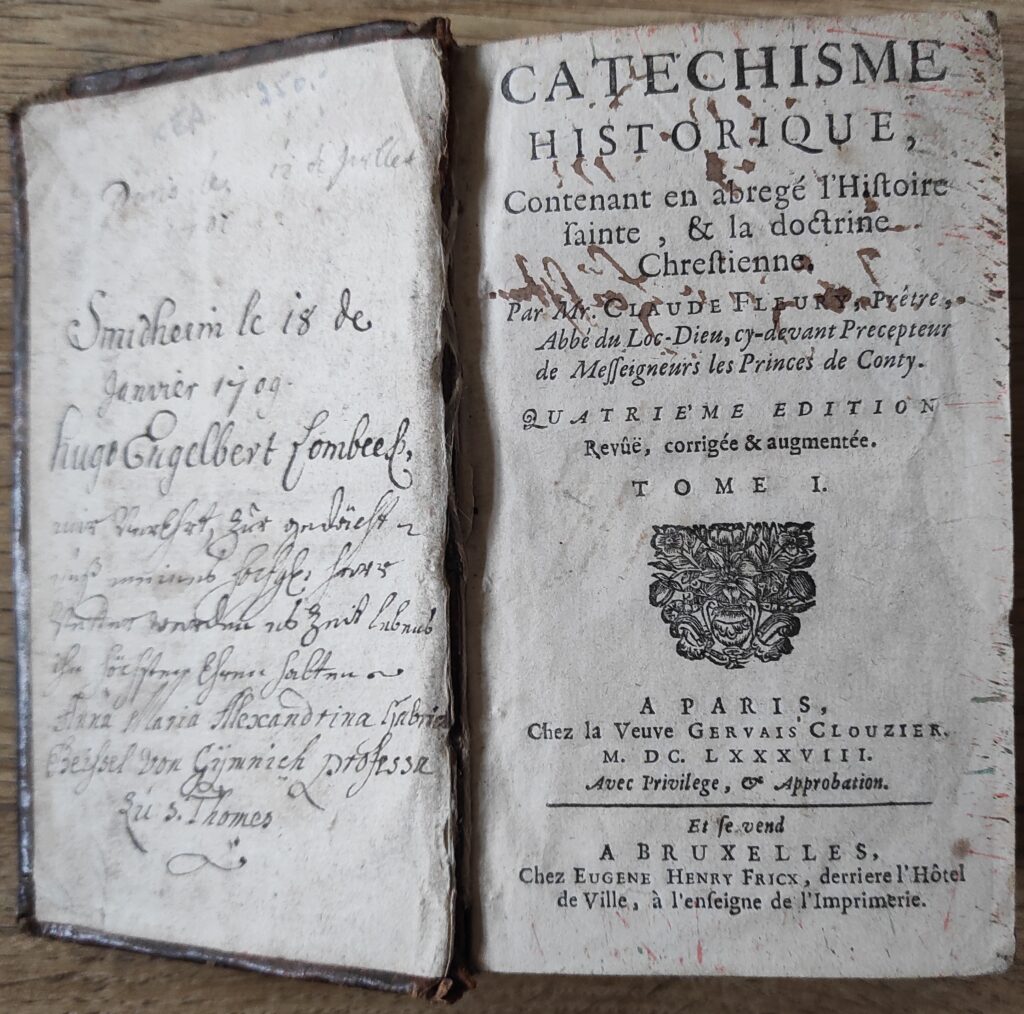 250.
12 de Juillet
Smidheim le 18 de
Janvier 1709.
hugo Engelbert
mir Verehrt, zur gedächt
nuß meines
werden es Zeit lebens
in höchsten Ehren halten
Anna Maria Alexandrina Gabriel
Beissel von Gymnich professa
zu S. Thomes
CATECHISME
HISTORIQUE,
Contenant en abregé l'Hiſtoire
ſainte, & la doctrine
Chreſtienne.
Par Mr. CLAUDE FLEURY, Prêtre,
Abbé du Loc-Dieu, cy-devant Precepteur
de Meſſeigneurs les Princes de Conty.
QUATRIE'ME EDITION
Revûë, corrigée & augmentée.
TOME I.
A PARIS,
Chez la Veuve GERVAIS CLOUZIER.
M. DC. LXXXVIII.
Avec Privilege, & Approbation.
Et ſe vend
A BRUXELLES,
Chez EUGENE HENRY FRICX, derriere l'Hôtel
de Ville, à l'enſeigne de l'Imprimerie.